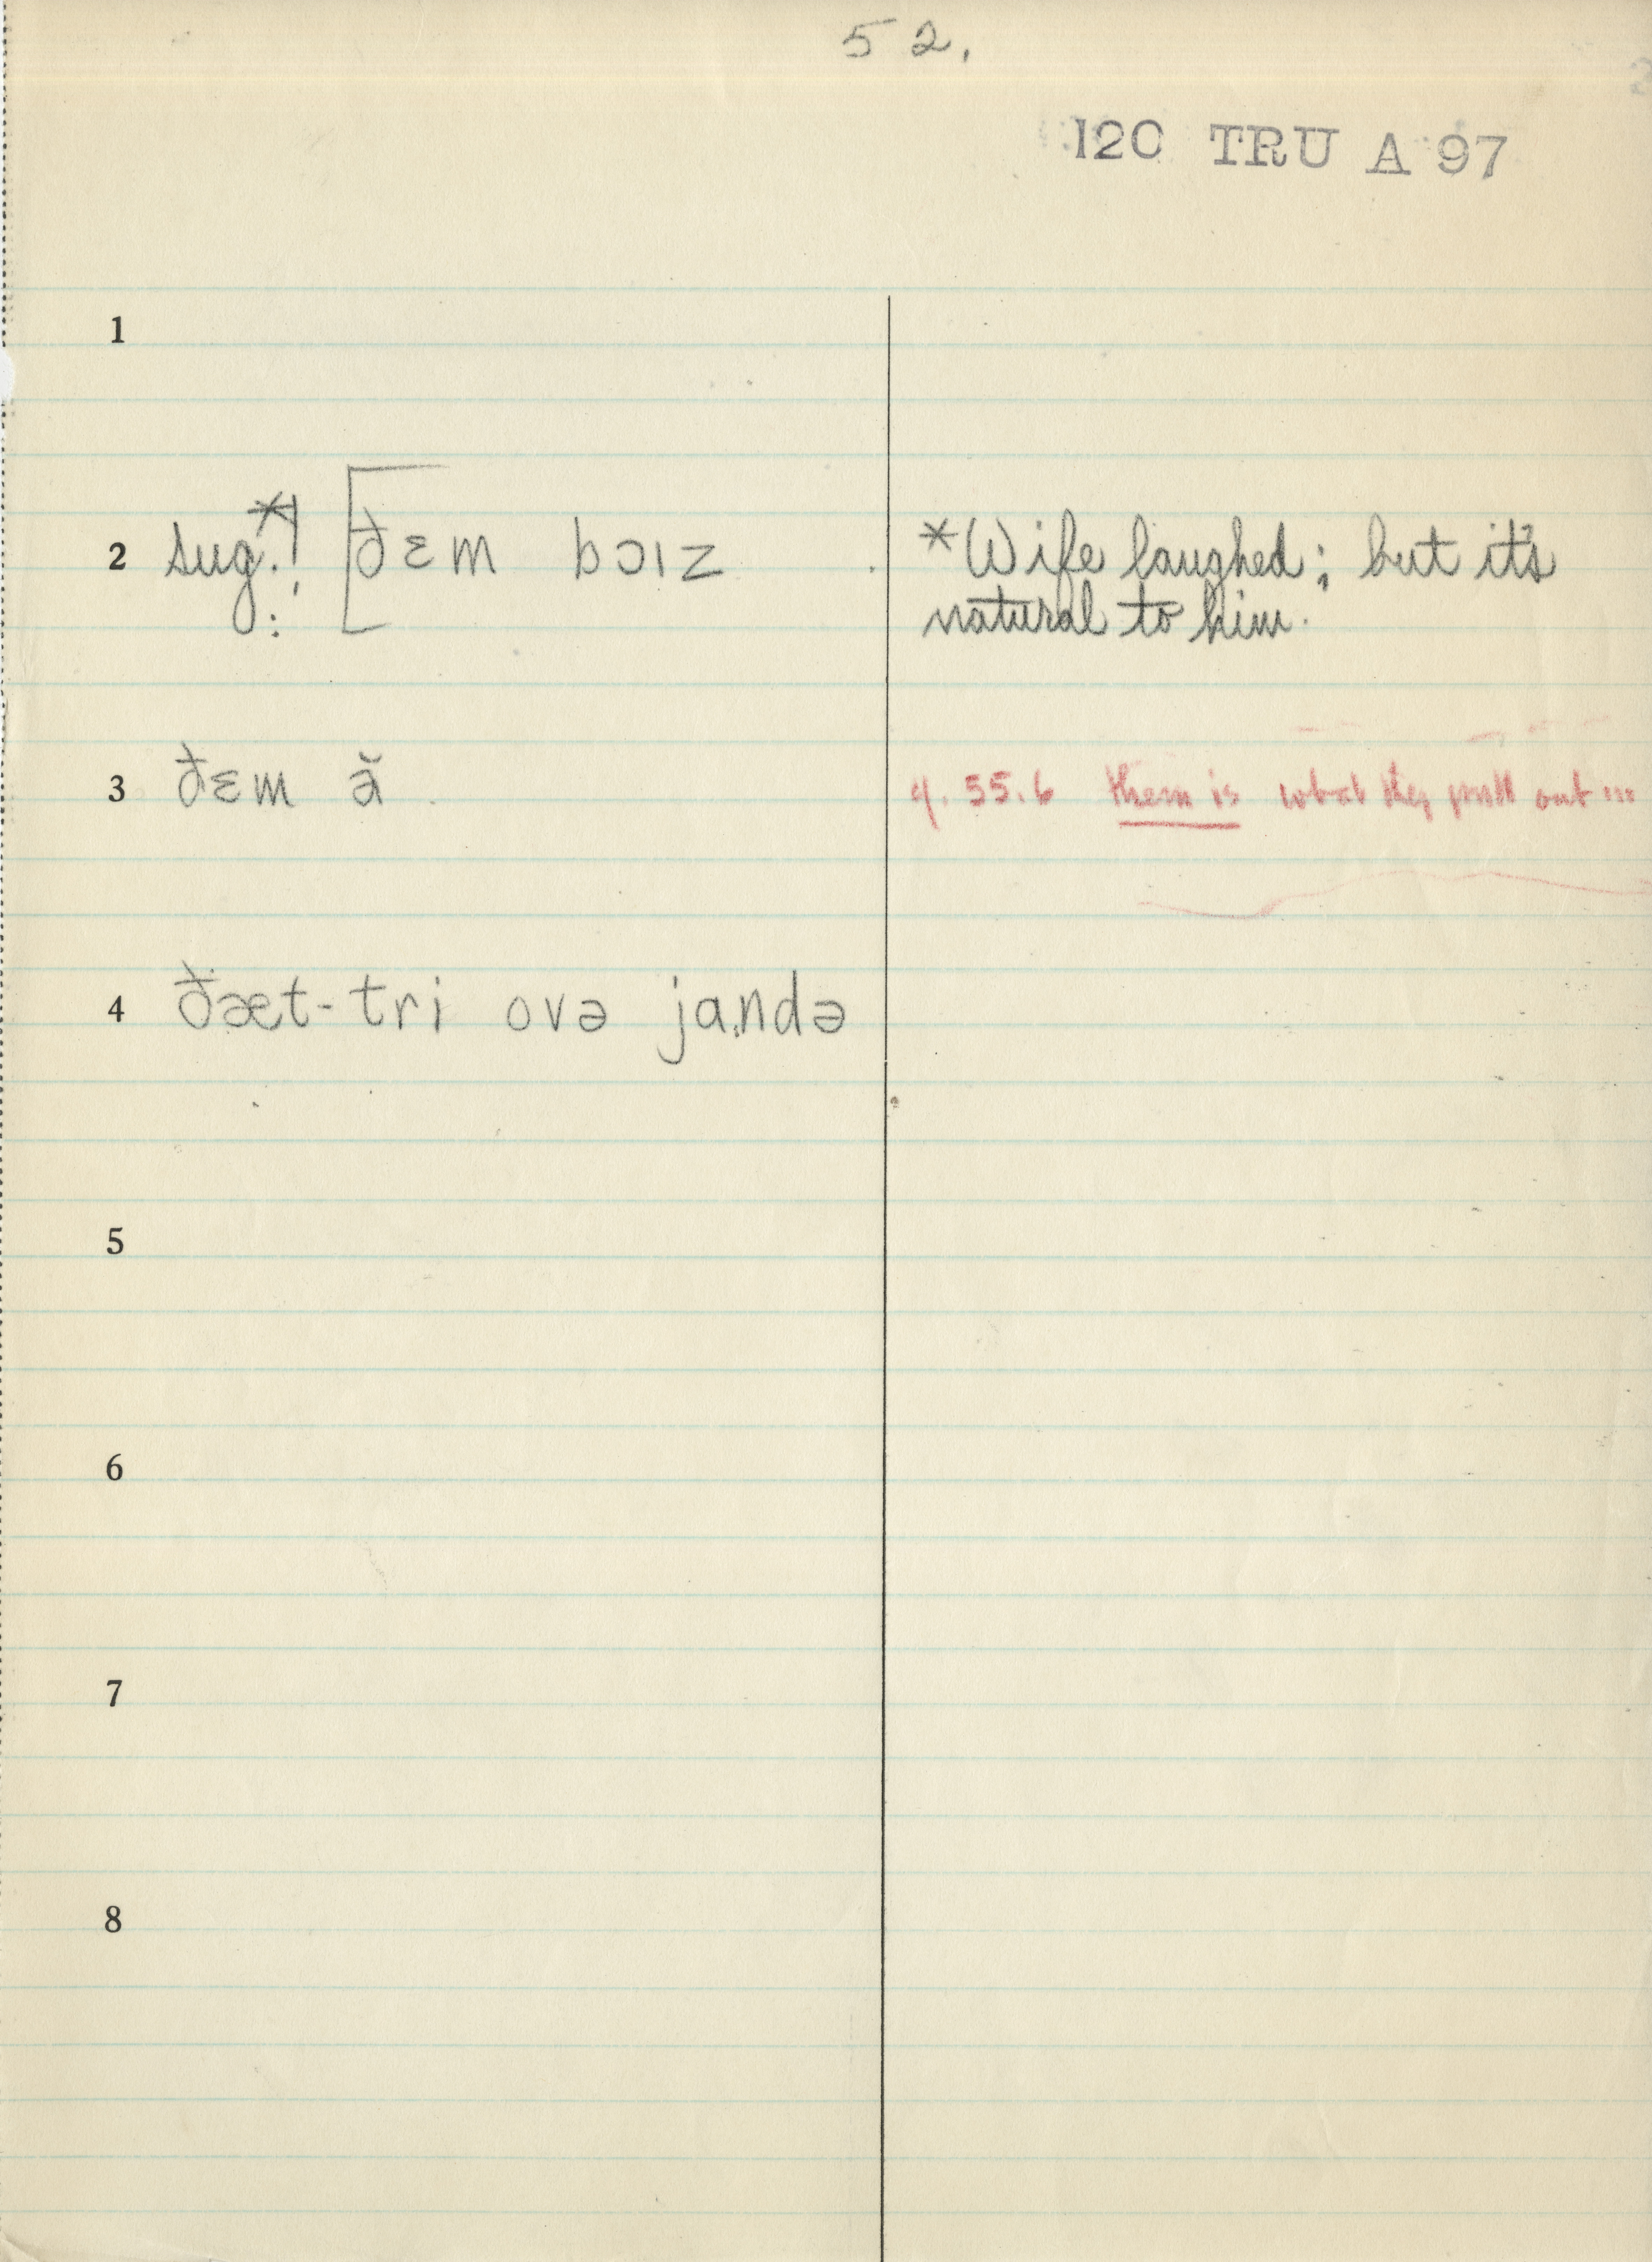 52.
120 TRU A 97
1
2 sug.*! : [ðɛm bɔɪz
*Wife laughed; but it's
natural to him.
3 ðɛm ă
55.6 them is what they pull out ...
4 ðæt-tri ovə jandə
5
6
7
8